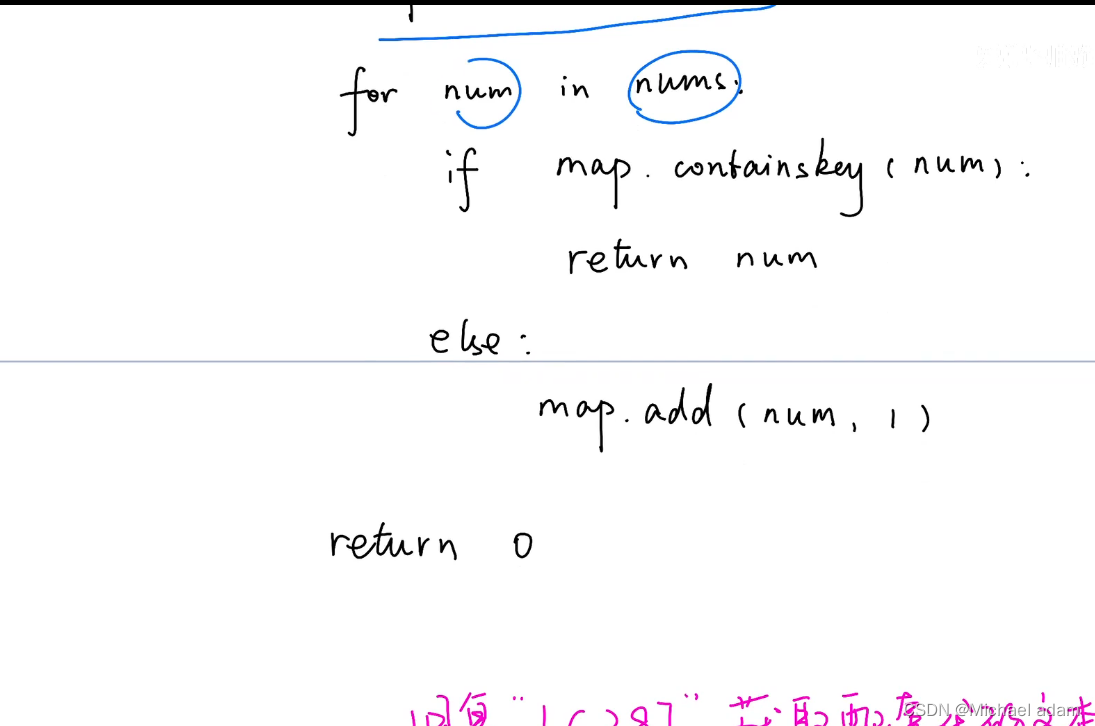 for num in nums:
if map.containskey(num):
return num
else:
map.add(num, 1)
return 0
回复"LC287"获取配套
CSDN @Michael adam